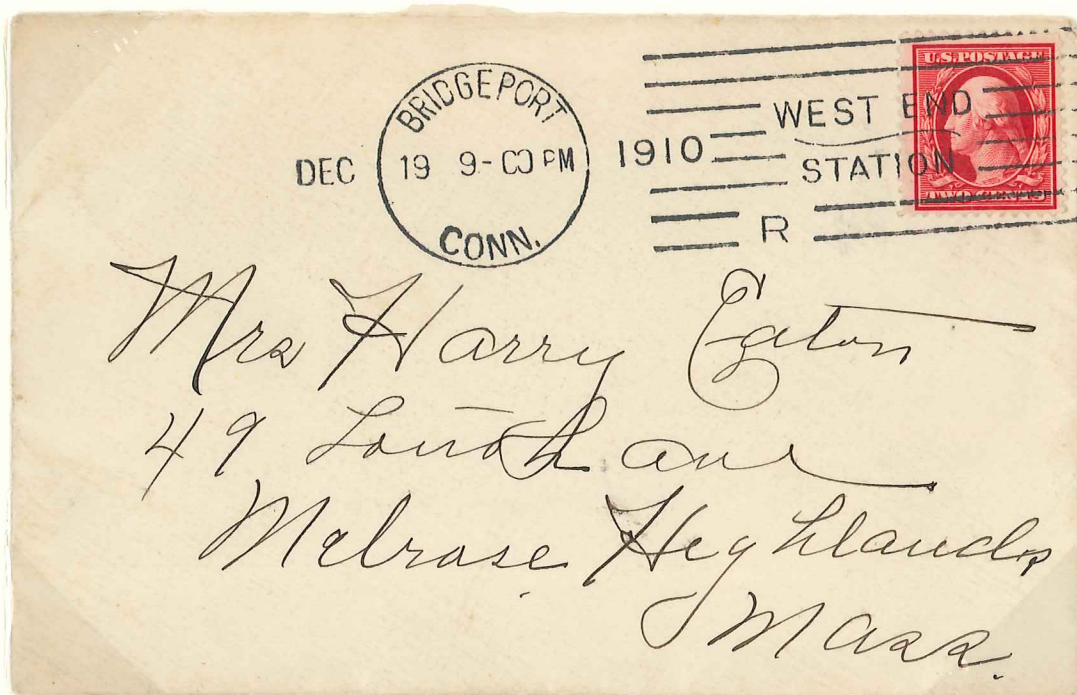 BRIDGEPORT
DEC 19 9-00 PM 1910
CONN.
WEST END
STATION
R
U.S. POSTAGE
TWO CENTS
Mrs Harry Eaton
49 ave
Melrose Heghlands
Mass.